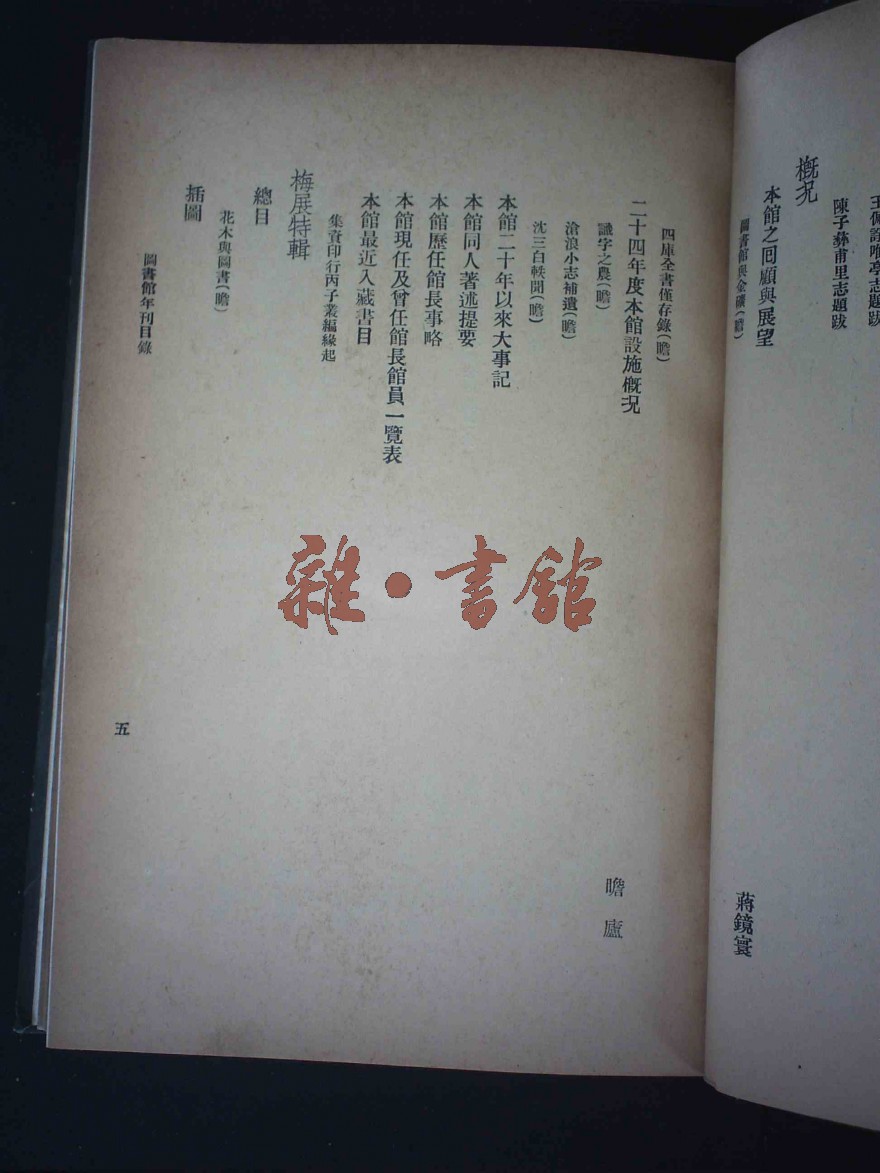 王佩諍唯亭志題跋
陳子彝甫里志題跋
概況
本館之回顧與展望
蔣鏡寰
圖書館與金礦(瞻)
四庫全書僅存錄(瞻)
二十四年度本館設施概況
瞻廬
識字之農(瞻)
滄浪小志補遺(瞻)
沈三白軼聞(瞻)
本館二十年以來大事記
本館同人著述提要
本館歷任館長事略
本館現任及曾任館長館員一覽表
本館最近入藏書目
集資印行丙子叢編緣起
梅展特輯
總目
花木與圖書(瞻)
插圖
圖書館年刊目錄
五
雜·書館